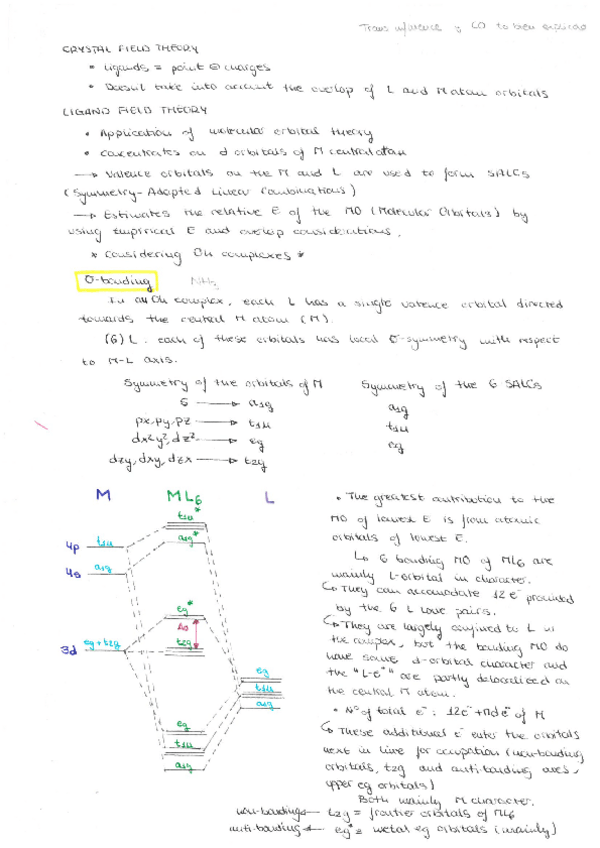 Trans influence y CO to bien explicao
CRYSTAL FIELD THEORY
• Ligands = point ⊖ charges
• Doesn't take into account the overlap of L and M atom orbitals
LIGAND FIELD THEORY
• Application of molecular orbital theory
• Concentrates on d orbitals of M central atom
→ Valence orbitals on the M and L are used to form SALCs
(Symmetry-Adapted Linear Combinations)
→ Estimates the relative E of the MO (Molecular Orbitals) by
using empirical E and overlap considerations.
* Considering Oh complexes *
σ-bonding NH3
In an Oh complex, each L has a single valence orbital directed
towards the central M atom (M).
(6) L. each of these orbitals has local σ-symmetry with respect
to M-L axis.
Symmetry of the orbitals of M
s → a1g
px, py, pz → t1u
dx²y², dz² → eg
dzy, dxy, dzx → t2g
Symmetry of the 6 SALCs
a1g
t1u
eg
M ML6 L
t1u*
4p t1u
a1g*
4s a1g
eg*
Δo
3d eg+t2g
t2g
eg
t1u
a1g
eg
t1u
a1g
• The greatest contribution to the
MO of lowest E is from atomic
orbitals of lowest E.
↳ 6 bonding MO of ML6 are
mainly L-orbital in character.
↳ They can accomodate 12 e⁻ provided
by the 6 L lone pairs.
↳ They are largely confined to L in
the complex, but the bonding MO do
have some d-orbital character and
the "L-e⁻" are partly delocalized on
the central M atom.
• Nº of total e⁻: 12e⁻ + nº de⁻ of M
↳ These additional e⁻ enter the orbitals
next in line for occupation (non-bonding
orbitals, t2g and anti-bonding ones,
upper eg orbitals)
Both mainly M character.
non-bonding ← t2g = frontier orbitals of ML6
anti-bonding ← eg* = metal eg orbitals (mainly)